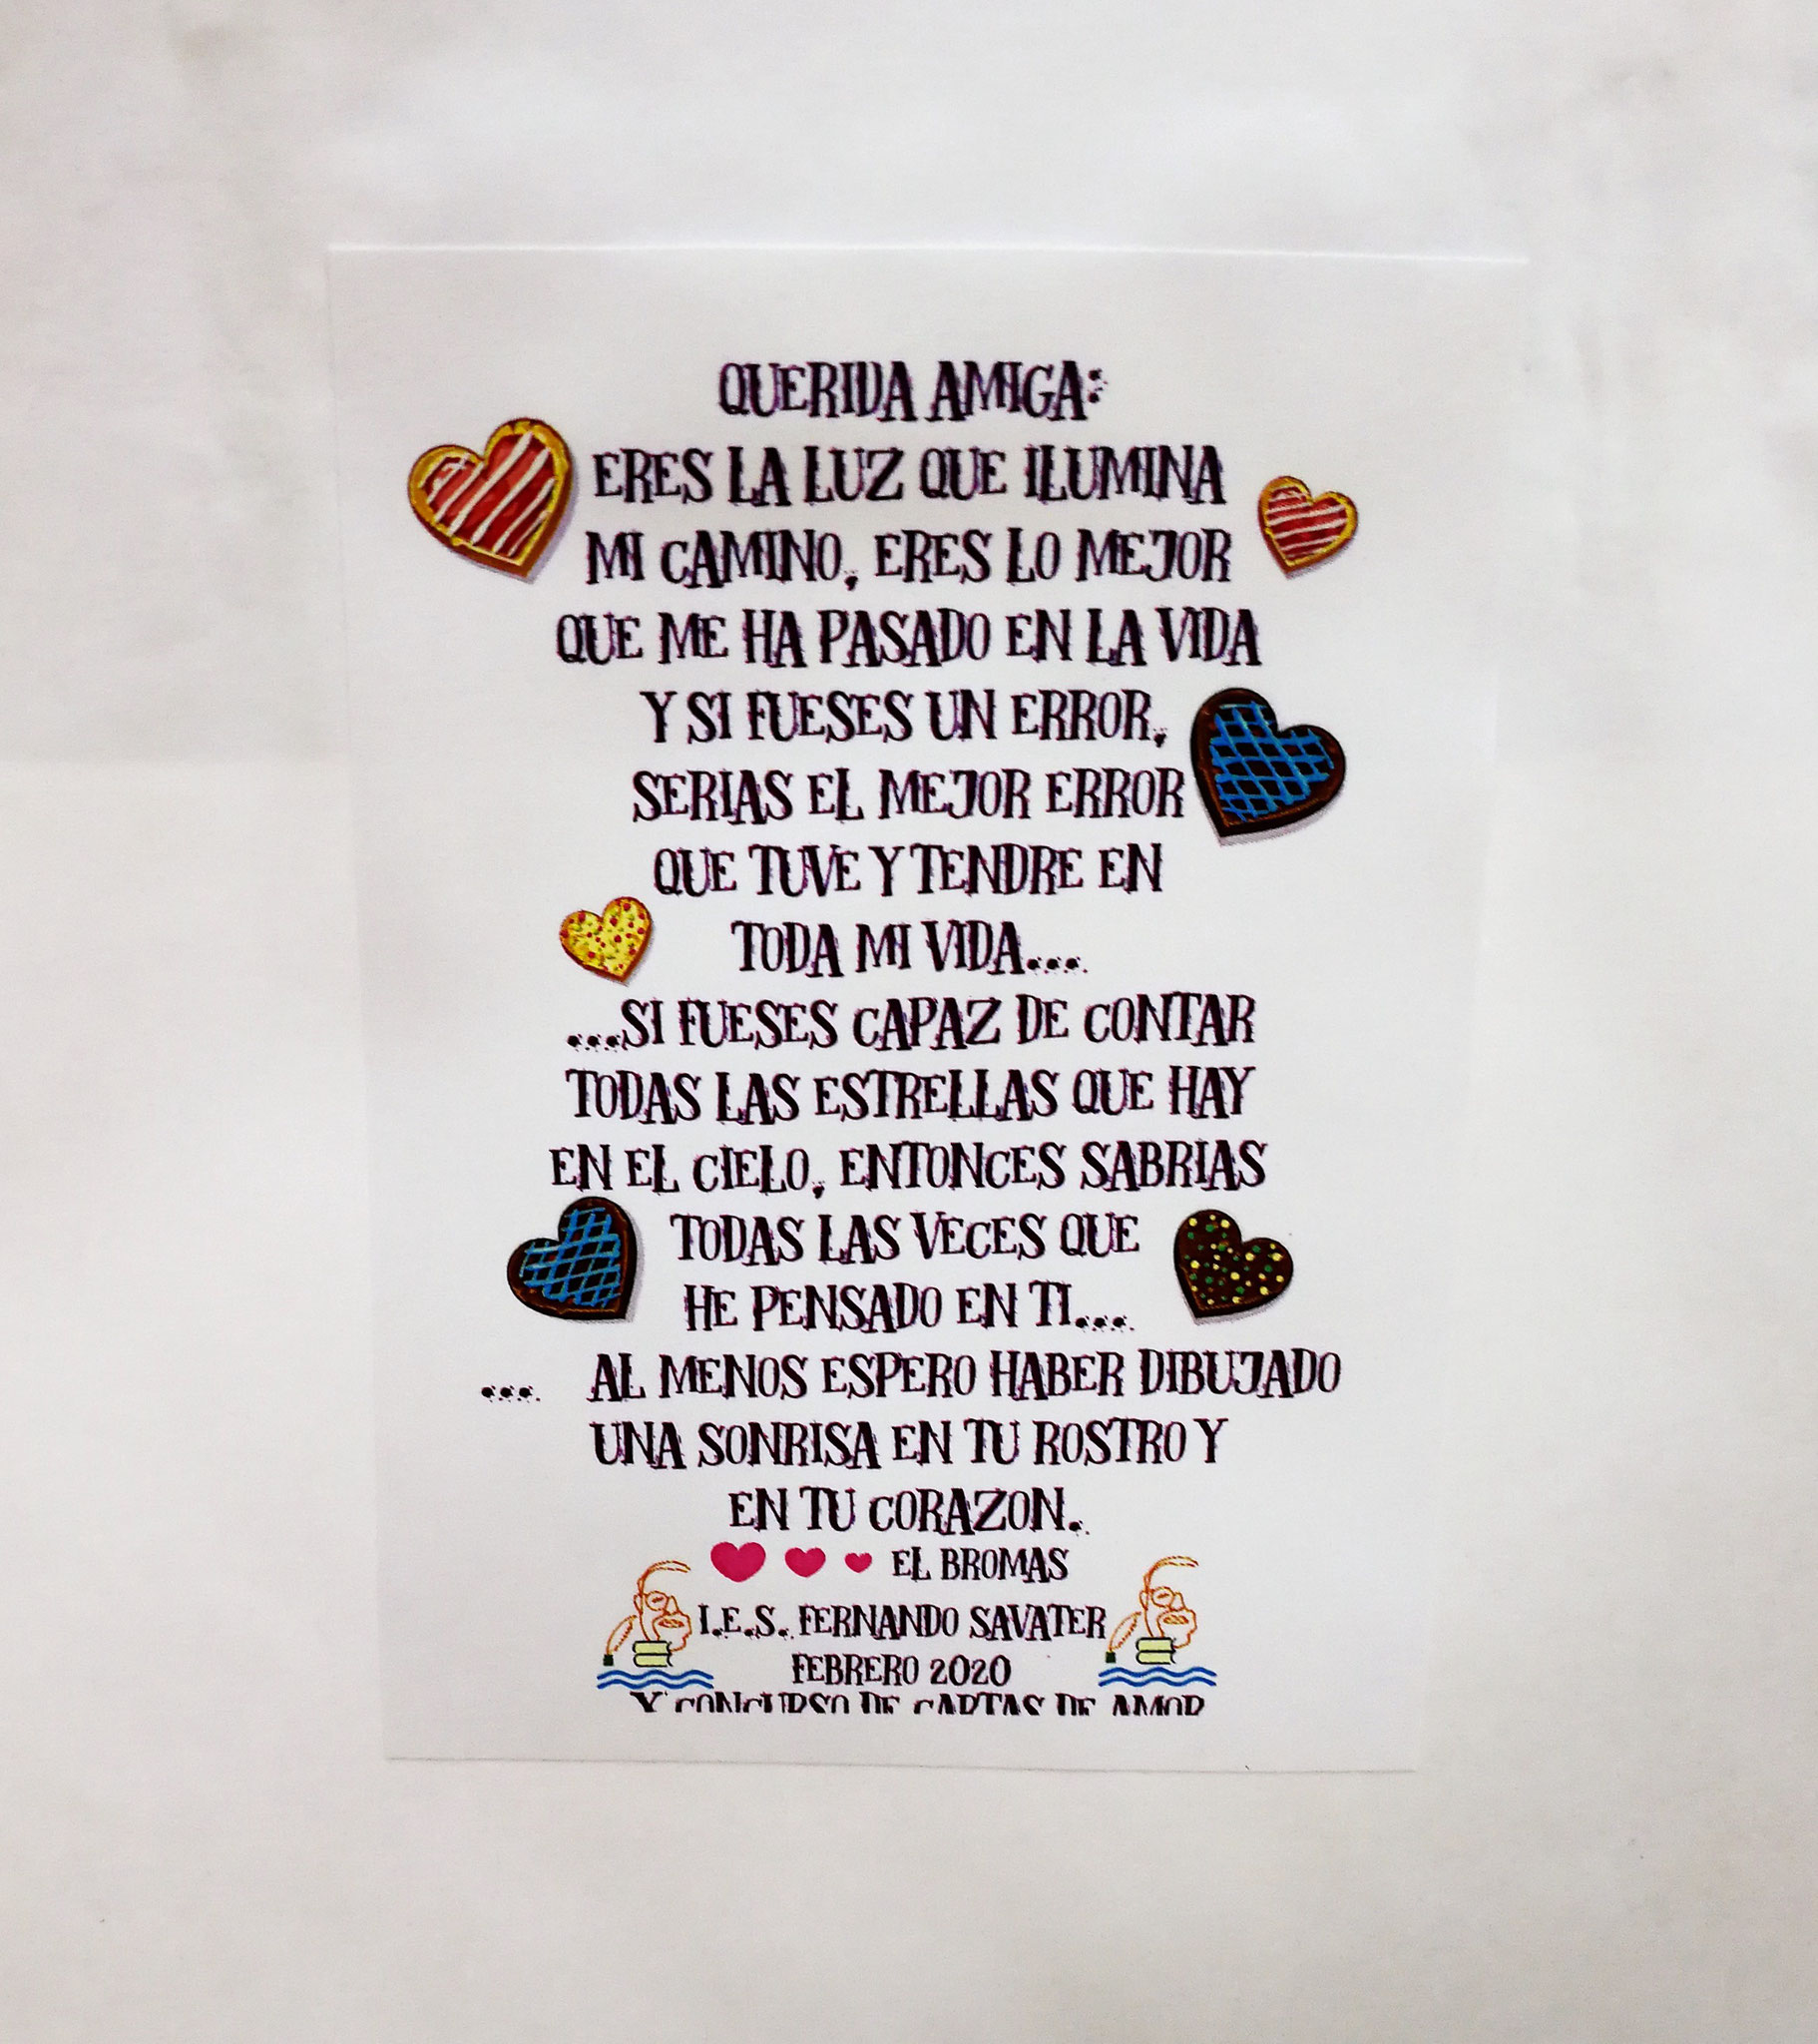 QUERIDA AMIGA:
ERES LA LUZ QUE ILUMINA
MI CAMINO, ERES LO MEJOR
QUE ME HA PASADO EN LA VIDA
Y SI FUESES UN ERROR,
SERIAS EL MEJOR ERROR
QUE TUVE Y TENDRE EN
TODA MI VIDA...
...SI FUESES CAPAZ DE CONTAR
TODAS LAS ESTRELLAS QUE HAY
EN EL CIELO, ENTONCES SABRIAS
TODAS LAS VECES QUE
HE PENSADO EN TI...
... AL MENOS ESPERO HABER DIBUJADO
UNA SONRISA EN TU ROSTRO Y
EN TU CORAZON.
EL BROMAS
I.E.S. FERNANDO SAVATER
FEBRERO 2020
CONCURSO DE CARTAS DE AMOR